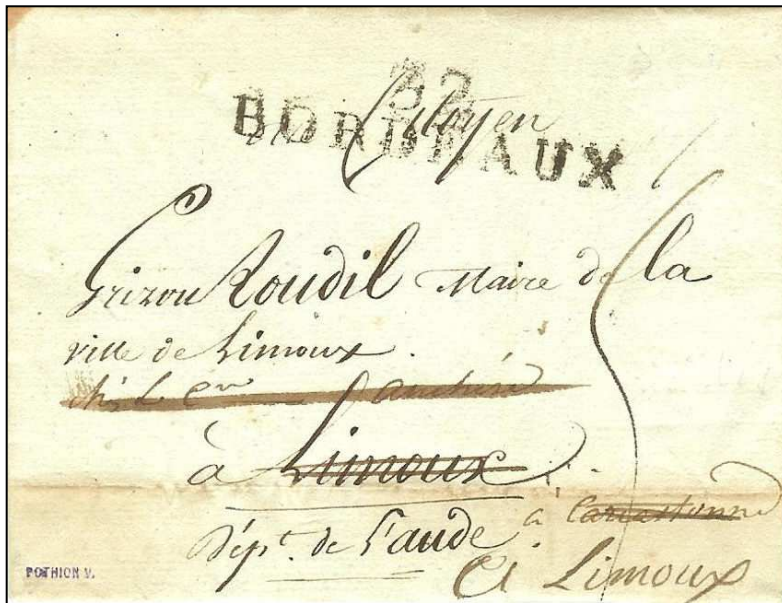 32
BORDEAUX
Citoyen
Grizou Roudil Maire de la
ville de Limoux.
chés le Cen
à Limoux
Dépt. de l'aude
à Carcassonne
à Limoux
POTHION V.